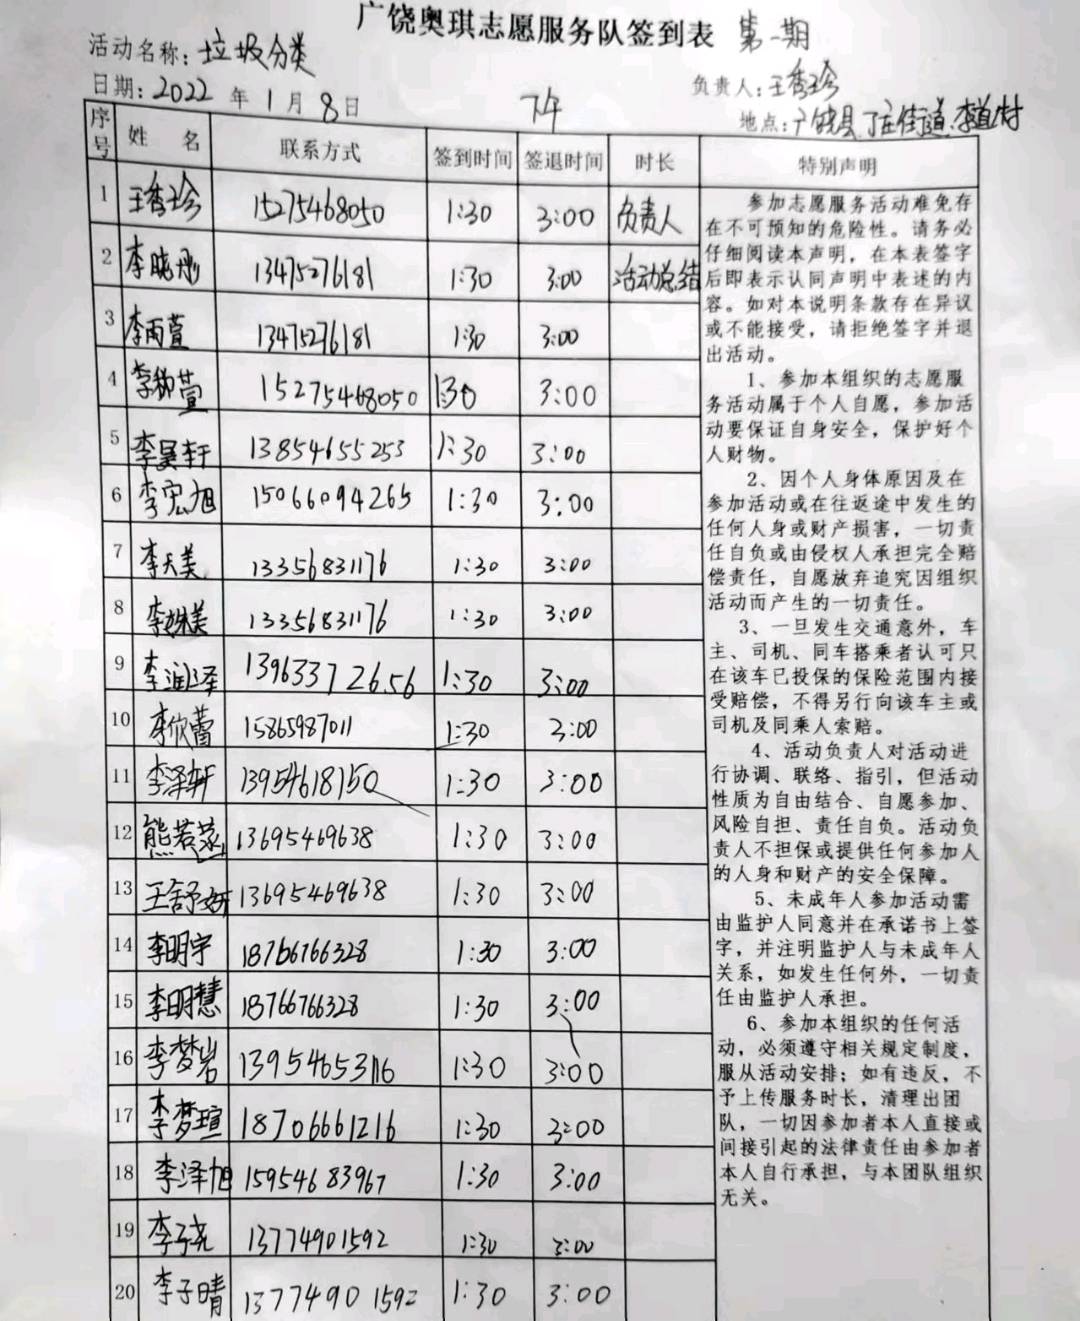 广饶奥琪志愿服务队签到表 第一期
活动名称：垃圾分类
日期：2022年1月8日 下午
负责人：王秀珍
地点：广饶县丁庄街道李道村
序号 姓名 联系方式 签到时间 签退时间 时长 特别声明
1 王秀珍 15275468050 1:30 3:00 负责人
2 李晓彤 13475276181 1:30 3:00 活动总结
3 李雨萱 13475276181 1:30 3:00
4 李 萱 15275468050 1:30 3:00
5 李昊轩 13854655253 1:30 3:00
6 李宏旭 15066094265 1:30 3:00
7 李天美 13356831176 1:30 3:00
8 李姝美 13356831176 1:30 3:00
9 李润泽 13963372656 1:30 3:00
10 李欣蕾 15865987011 1:30 3:00
11 李泽轩 13954618150 1:30 3:00
12 熊若涵 13695469638 1:30 3:00
13 王舒妍 13695469638 1:30 3:00
14 李明宇 18766766328 1:30 3:00
15 李明慧 18766766328 1:30 3:00
16 李梦岩 13954653116 1:30 3:00
17 李梦瑄 18706661216 1:30 3:00
18 李泽旭 15954683967 1:30 3:00
19 李子尧 13774901592 1:30 3:00
20 李子晴 13774901592 1:30 3:00
参加志愿服务活动难免存
在不可预知的危险性。请务必
仔细阅读本声明，在本表签字
后即表示认同声明中表述的内
容。如对本说明条款存在异议
或不能接受，请拒绝签字并退
出活动。
1、参加本组织的志愿服
务活动属于个人自愿，参加活
动要保证自身安全，保护好个
人财物。
2、因个人身体原因及在
参加活动或在往返途中发生的
任何人身或财产损害，一切责
任自负或由侵权人承担完全赔
偿责任，自愿放弃追究因组织
活动而产生的一切责任。
3、一旦发生交通意外，车
主、司机、同车搭乘者认可只
在该车已投保的保险范围内接
受赔偿，不得另行向该车主或
司机及同乘人索赔。
4、活动负责人对活动进
行协调、联络、指引，但活动
性质为自由结合、自愿参加、
风险自担、责任自负。活动负
责人不担保或提供任何参加人
的人身和财产的安全保障。
5、未成年人参加活动需
由监护人同意并在承诺书上签
字，并注明监护人与未成年人
关系，如发生任何外，一切责
任由监护人承担。
6、参加本组织的任何活
动，必须遵守相关规定制度，
服从活动安排；如有违反，不
予上传服务时长，清理出团
队，一切因参加者本人直接或
间接引起的法律责任由参加者
本人自行承担，与本团队组织
无关。